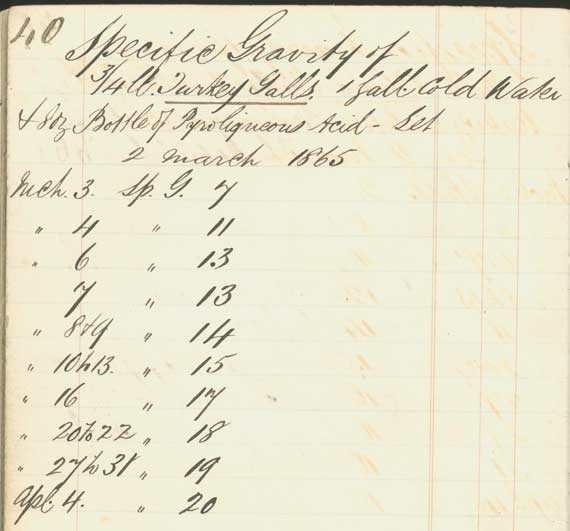 40
Specific Gravity of
3/4 lb. Turkey Galls. 1 Gall. Cold Water
& 8 oz Bottle of Pyroligneous Acid - Set
2 March 1865
Mch. 3. Sp. G. 7
" 4 " 11
" 6 " 13
7 " 13
" 8 & 9 " 14
" 10 to 13. " 15
" 16 " 17
" 20 to 22 " 18
" 27 to 31 " 19
Apl. 4. " 20